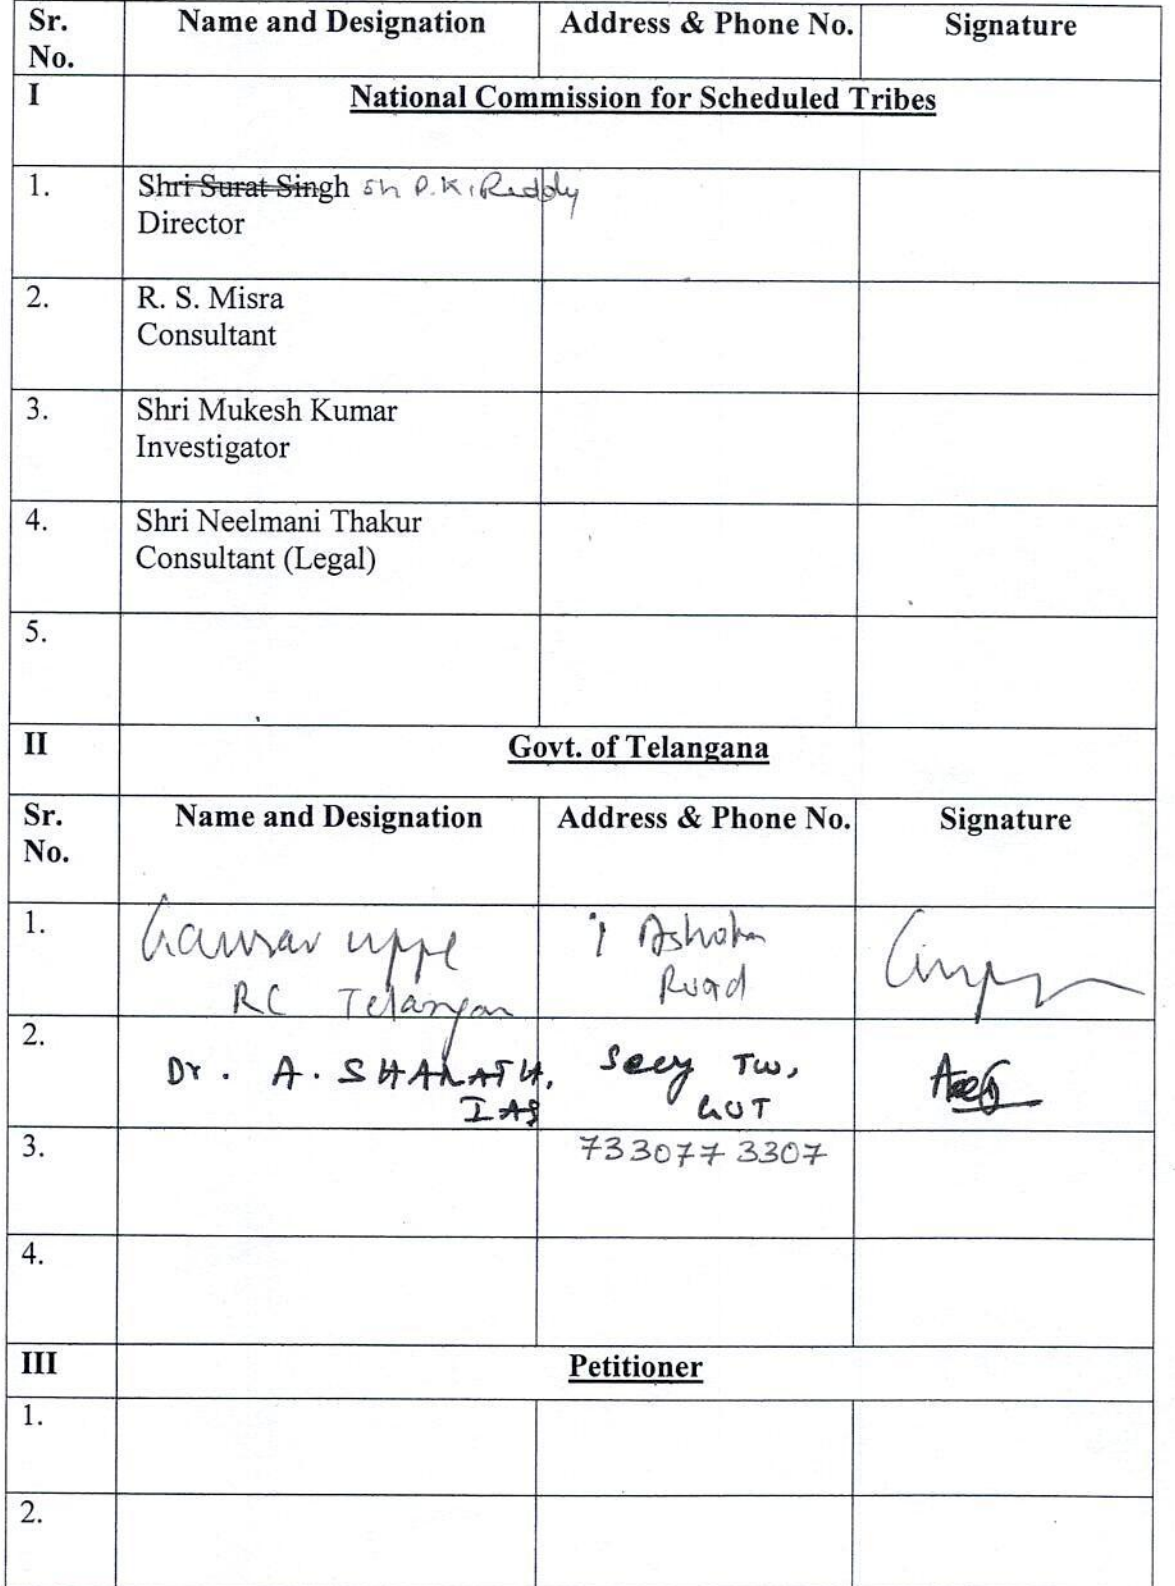 Sr. No. Name and Designation Address & Phone No. Signature
I National Commission for Scheduled Tribes
1. Shri Surat Singh Sh P.K. Reddy
Director
2. R. S. Misra
Consultant
3. Shri Mukesh Kumar
Investigator
4. Shri Neelmani Thakur
Consultant (Legal)
5.
II Govt. of Telangana
Sr. No. Name and Designation Address & Phone No. Signature
1. Gaurav uppl 1 Ashoka
RC Telangan Road
2. Dr. A. SHARATH, Secy TW,
IAS GOT
3. 733077 3307
4.
III Petitioner
1.
2.